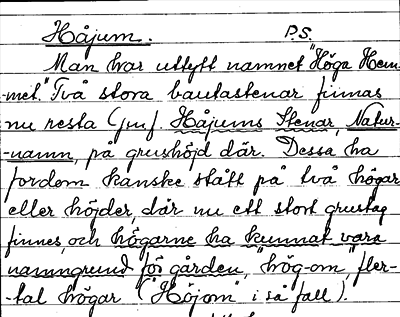 Håjum. P.S.
Man har uttytt namnet "Höga Hem-
met." Två stora bautastenar finnas
nu resta (jmf. Håjums Stenar, Natur-
-namn, på grushöjd där. Dessa ha
fordom kanske stått på två högar
eller höjder, där nu ett stort grustag
finnes, och högarne ha kunnat vara
namngrund för gården, "hög-om", fler-
-tal högar ("Höjom" i så fall).